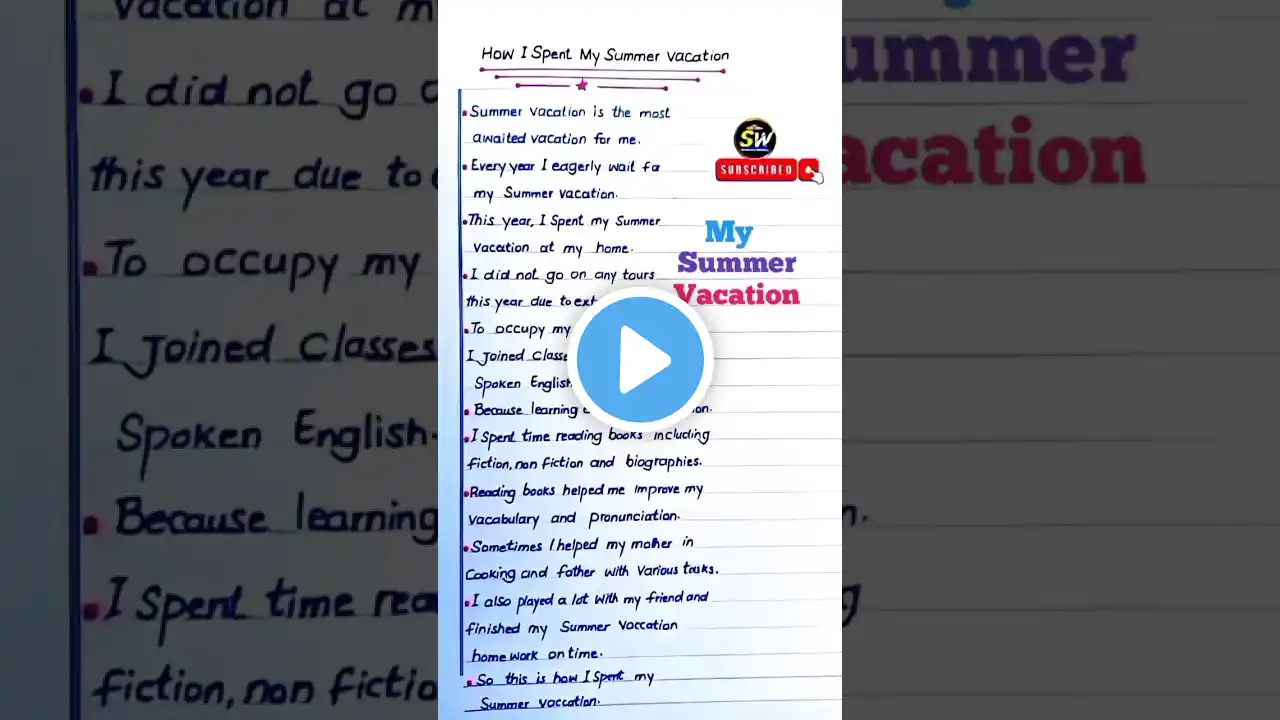 How I Spent My Summer Vacation
Summer vacation is the most
awaited vacation for me.
Every year I eagerly wait for
my Summer vacation.
This year, I Spent my Summer
vacation at my home.
I did not go on any tours
this year due to
To occupy my
I Joined
Spoken English
Because learning
I spent time reading books including
fiction, non fiction and biographies.
Reading books helped me improve my
vocabulary and pronunciation.
Sometimes I helped my mother in
Cooking and father with various tasks.
I also played a lot with my friend and
finished my Summer vaccation
home work on time.
So this is how I Spent my
Summer vaccation.
SW
SUBSCRIBED
My
Summer
Vacation
vacation at
I did not go
this year due to
To occupy my
I Joined Classes
Spoken English.
Because learning
I Spent time
fiction, non
ummer
acation